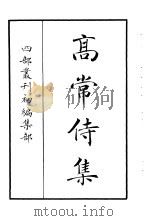 高常侍集
四部叢刊初編集部